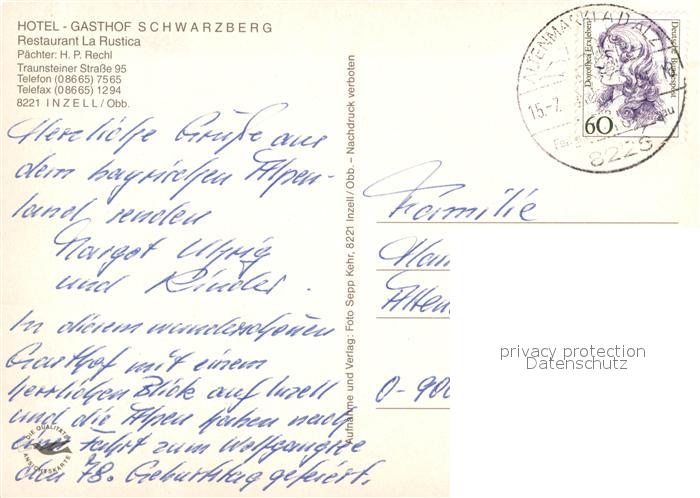 HOTEL - GASTHOF SCHWARZBERG
Restaurant La Rustica
Pächter: H. P. Rechl
Traunsteiner Straße 95
Telefon (08665) 7565
Telefax (08665) 1294
8221 INZELL/Obb.
Herzliche Grüße aus
dem bayrischen Alpen-
land senden
Margot
und Kinder.
In diesem wunderschönen
Gasthof mit einem
herrlichen Blick auf Inzell
und die Alpen haben nach
einer Fahrt zum Wolfgangsee
den 78. Geburtstag gefeiert.
DIE QUALITÄTS
ANSICHTSKARTE
Aufnahme und Verlag: Foto Sepp Kehr, 8221 Inzell/Obb. – Nachdruck verboten
ALTENMARKT A D ALZ
15.-7.
8226
Dorothea Erxleben
Deutsche Bundespost
60
Familie
O-900
privacy protection
Datenschutz